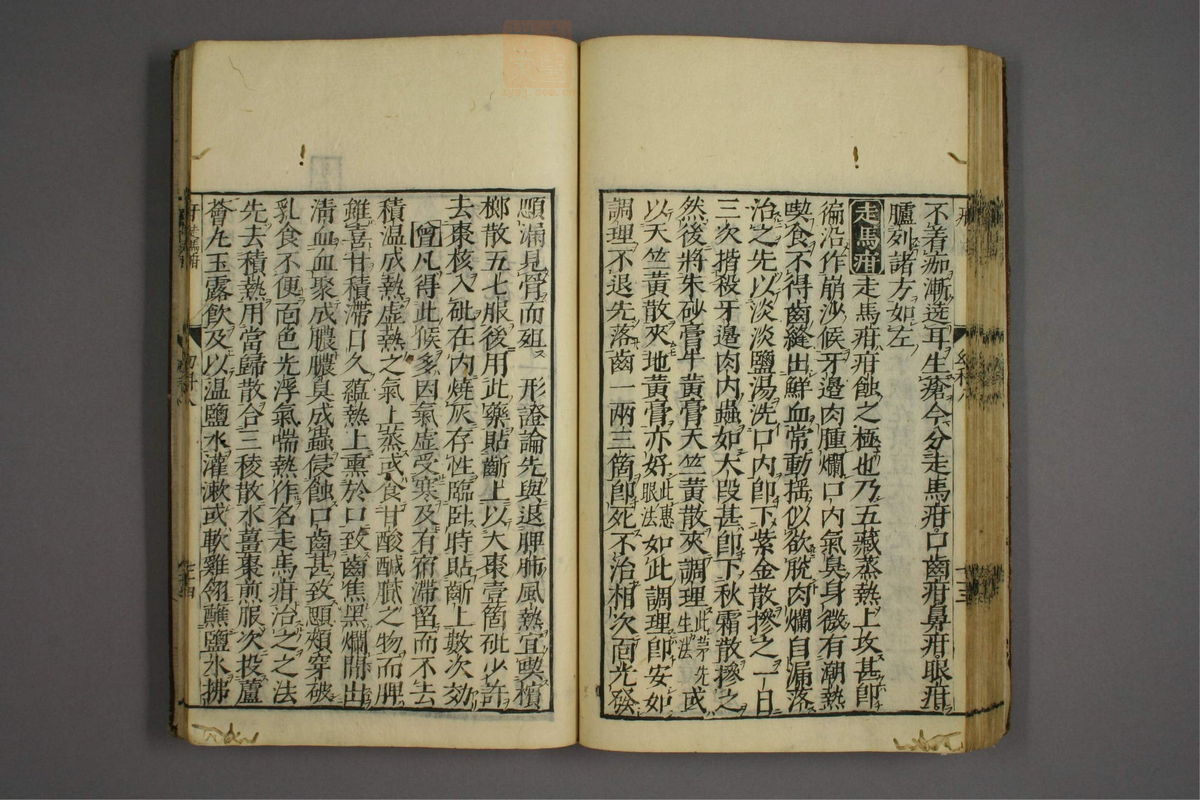 不着痂漸迤耳生瘡今分走馬疳口齒疳鼻疳眼疳
臚列諸方如左
走馬疳走馬疳疳蝕之極也乃五藏蒸熱上攻甚即
徧沿作崩沙候牙邊肉腫爛口内氣臭身微有潮熱
喫食不得齒縫出鮮血常動揺似欲脱肉爛自漏落
治之先以淡淡鹽湯洗口内即下紫金散摻之一日
三次揩殺牙邊肉内蟲如大段甚即下秋霜散摻之
然後將朱砂膏牛黄膏天竺黄散夾調理此茅先生法或
以天竺黄散夾地黄膏亦好此惠眼法如此調理即安如
調理不退先落齒一兩三箇即死不治相次面光發
顋漏見骨而殂 形證論先與退脾肺風熱宜喫檳
榔散五七服後用此藥貼齗上以大棗壹箇砒少許
去棗核入砒在内燒灰存性臨卧時貼齗上數次効
曾凡得此候多因氣虚受寒及有宿滯留而不去
積温成熱虚熱之氣上蒸或食甘酸鹹膩之物而脾
雖喜甘積滯日久藴熱上熏於口致齒焦黑爛間出
清血血聚成膿膿臭成蟲侵蝕口齒甚致顋頬穿破
乳食不便面色光浮氣喘熱作名走馬疳治之之法
先去積熱用當歸散合三稜散水薑棗煎服次投蘆
薈丸玉露飲及以温鹽水灌漱或軟雞翎蘸鹽水拂